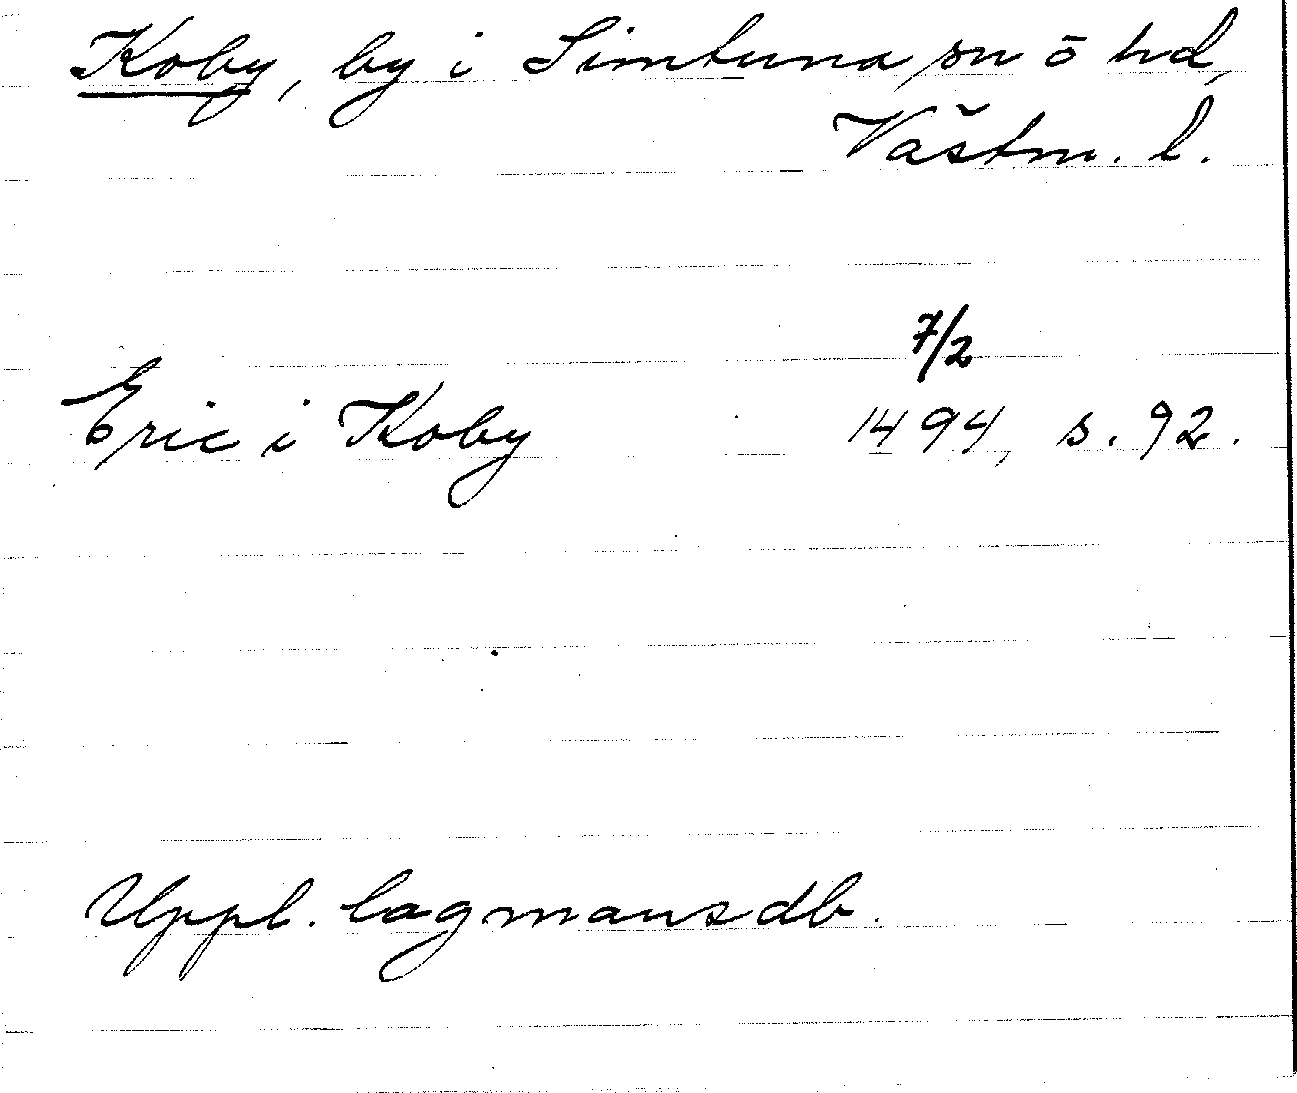 Koby, by i Simtuna sn ō hd,
Västm. l.
7/2
Eric i Koby 1494, s. 92.
Uppl. lagmansdb.